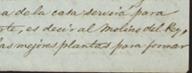 a de la casa serviria para
te, es decir al Molino del Rey,
as mejores plantas para formar